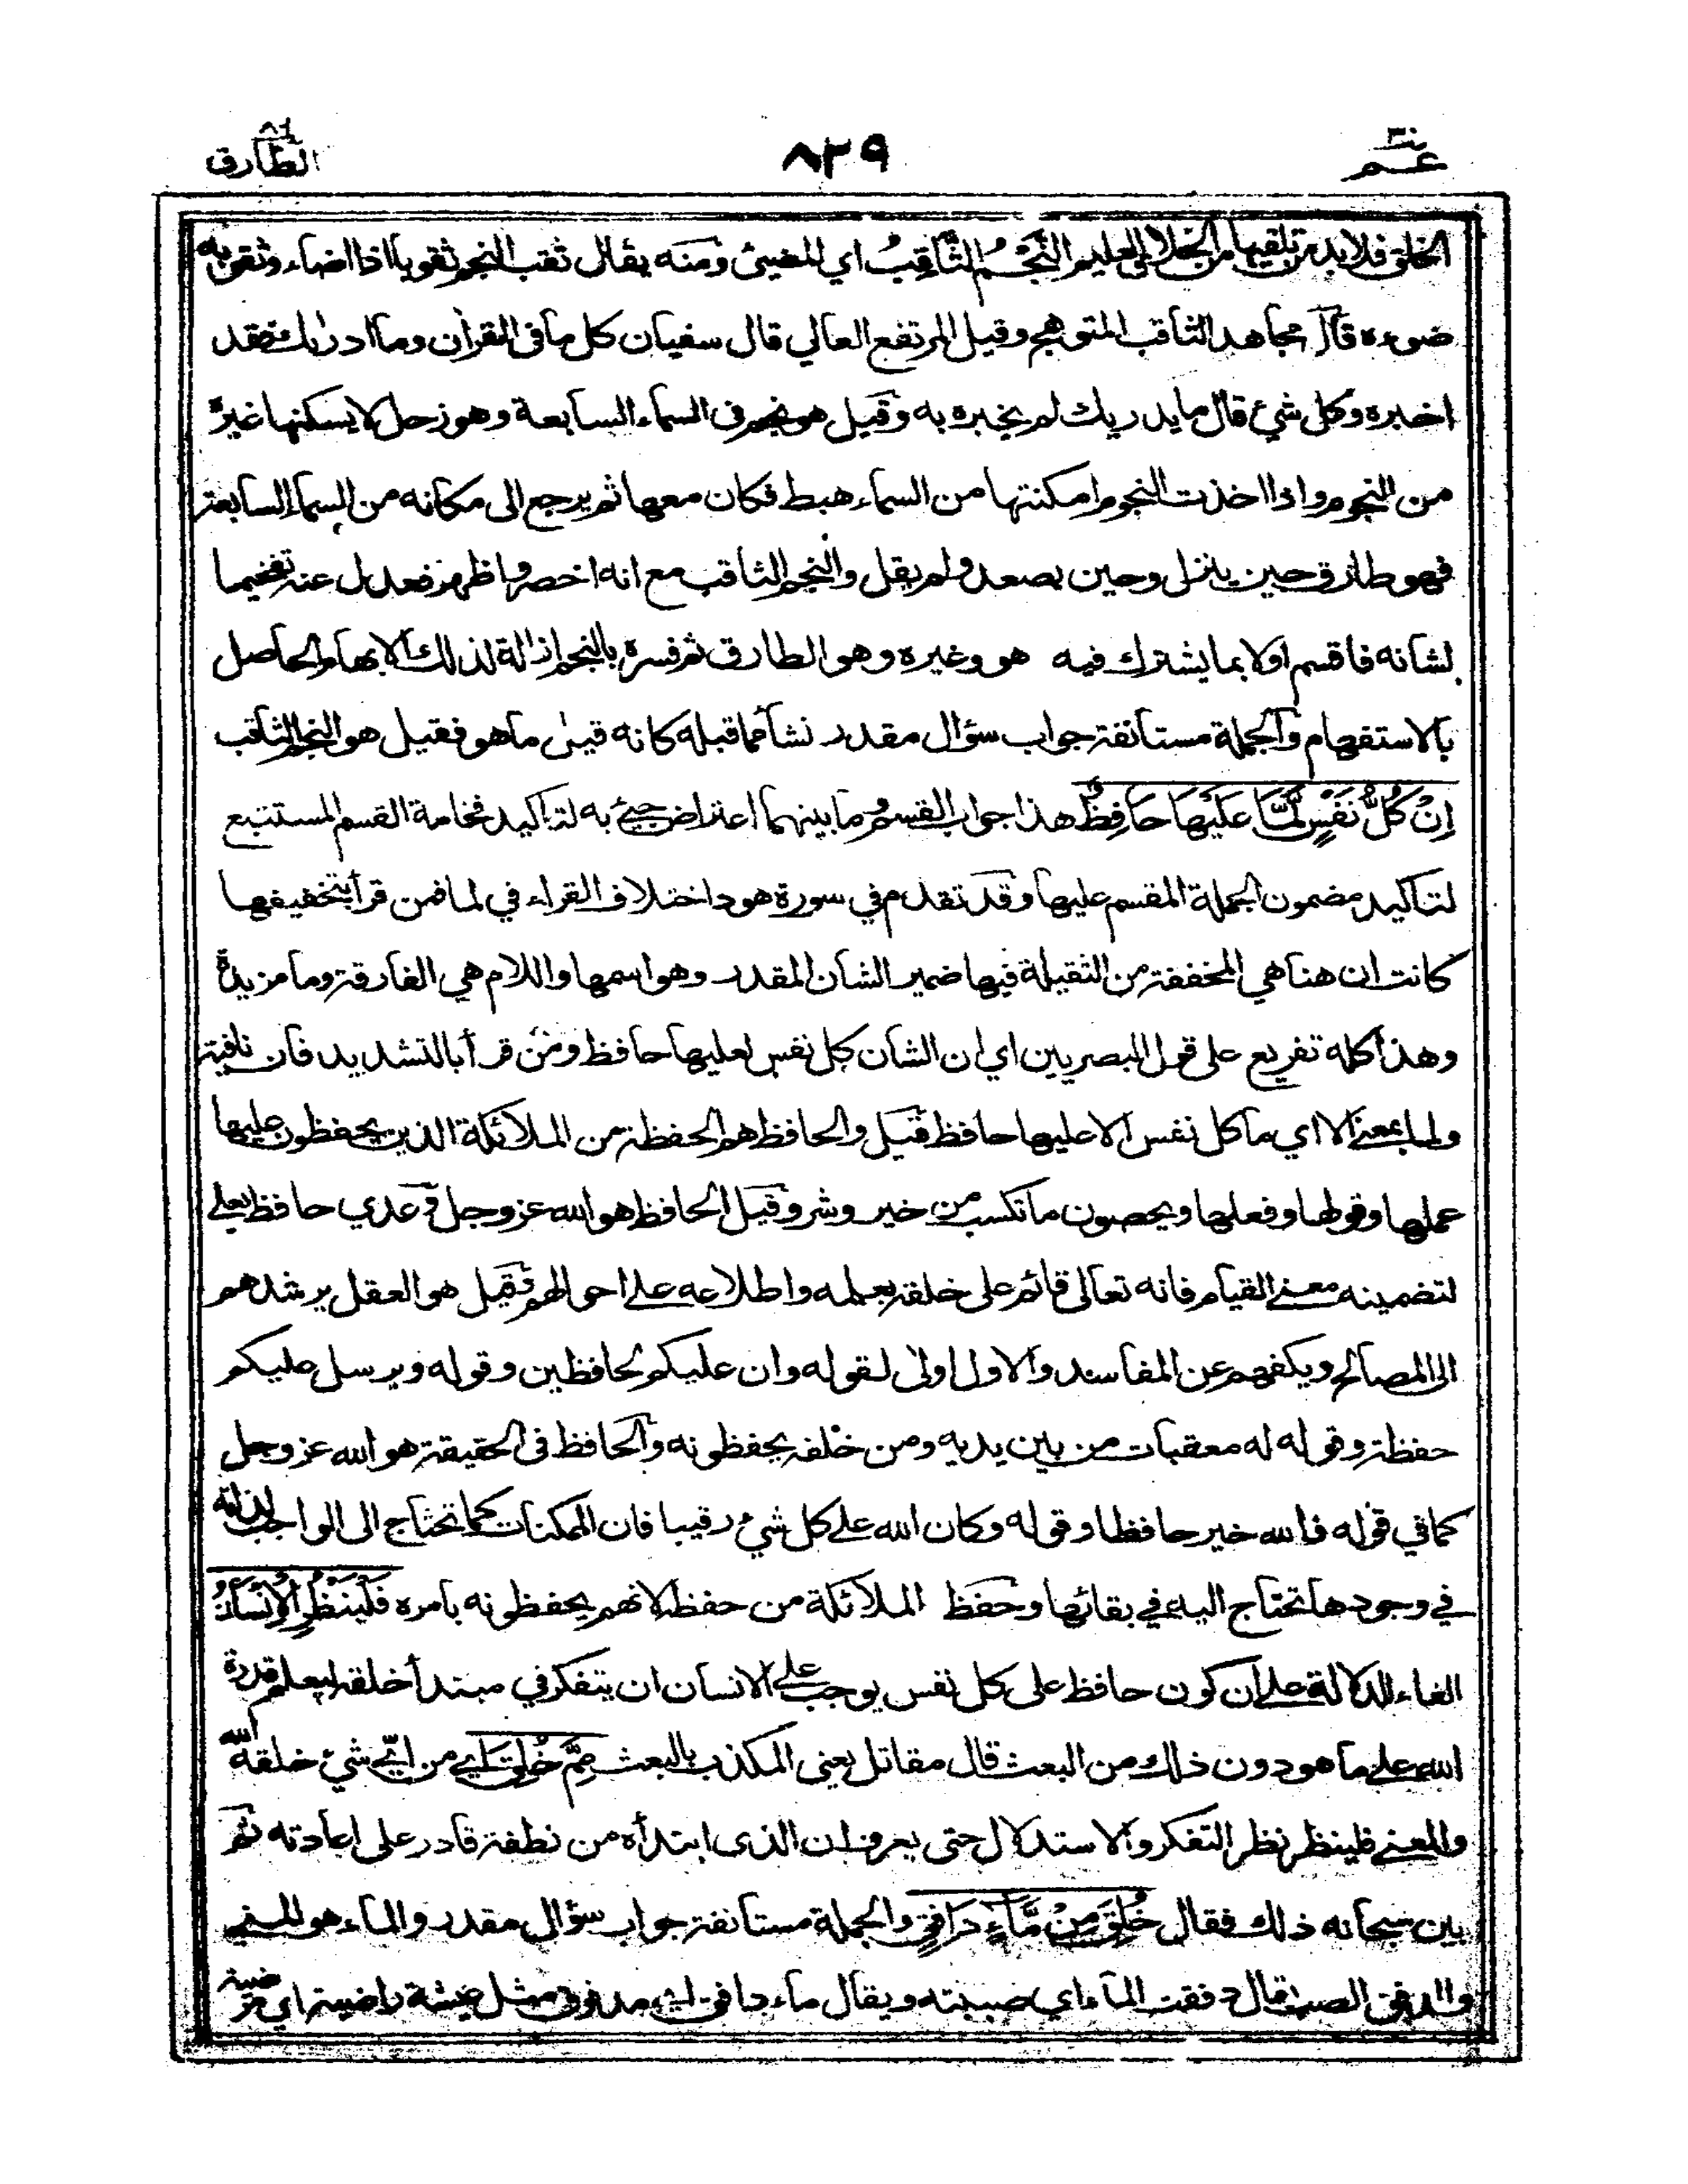 عم
٨٣٩
٨٦ الطارق
الخلق فلا بد من تلقيها من الخلاق العليم النَّجْمُ الثَّاقِبُ اي المضيئ ومنه يقال ثقب النجم ثقوبا اذا اضاء وثقوبه
ضوءه قال مجاهد الثاقب المتوهج وقيل المرتفع العالي قال سفيان كل ما فى القرأن وما ادرٰىك فقد
اخبره وكل شئ قال ما يدريك لم يخبره به وقيل هو نجم فى السماء السابعة وهو زحل لا يسكنها غيره
من النجوم واذا اخذت النجوم امكنتها من السماء هبط فكان معها ثم يرجع الى مكانه من السماء السابعة
فهو طارق حين ينزل وحين يصعد ولم يقل والنجم الثاقب مع انه اخصر واظهر فعدل عنه تفخيما
لشانه فاقسم اولا بما يشترك فيه هو وغيره وهو الطارق ثم فسره بالنجم ازالة لذلك الابهام الحاصل
بالاستفهام والجملة مستأنفة جواب سؤال مقدر نشأ مما قبله كانه قيل ما هو فقيل هو النجم الثاقب
اِنْ كُلُّ نَفْسٍ لَّمَّا عَلَيْهَا حَافِظٌ هذا جواب القسم وما بينهما اعتراض جيئ به لتاكيد فخامة القسم المستتبع
لتاكيد مضمون الجملة المقسم عليها وقد تقدم في سورة هود اختلاف القراء في لما فمن قرأ بتخفيفها
كانت ان هنا هي المخففة من الثقيلة فيها ضمير الشان المقدر وهو اسمها واللام هي الفارقة وما مزيدة
وهذا كله تفريع على قول البصريين اي ان الشان كل نفس لعليها حافظ ومن قرأ بالتشديد فان نافية
ولما بمعنى الا اي ما كل نفس الا عليها حافظ قيل والحافظ هم الحفظة من الملائكة الذين يحفظون عليها
عملها وقولها وفعلها ويحصون ما تكسب من خير وشر وقيل الحافظ هو الله عز وجل وعدي حافظ بعلى
لتضمينه معنى القيام فانه تعالى قائم على خلقه بعلمه واطلاعه على احوالهم وقيل هو العقل يرشدهم
الى المصالح ويكفهم عن المفاسد والاول اولى لقوله وان عليكم لحافظين وقوله ويرسل عليكم
حفظة وقوله له معقبات من بين يديه ومن خلفه يحفظونه والحافظ فى الحقيقة هو الله عز وجل
كما في قوله فالله خير حافظا وقوله وكان الله على كل شئ رقيبا فان الممكنات كما تحتاج الى الواجب لذاته
في وجودها تحتاج اليه في بقائها وحفظ الملائكة من حفظه لانهم يحفظونه بامره فَلْيَنْظُرِ الْاِنْسَانُ
الفاء للدلالة على ان كون حافظ على كل نفس يوجب على الانسان ان يتفكر في مبتدأ خلقه ليعلم قدرة
الله على ما هو دون ذلك من البعث قال مقاتل يعنى المكذب بالبعث مِمَّ خُلِقَ اي من اي شئ خلقه الله
والمعنى فلينظر نظر التفكر والاستدلال حتى يعرف ان الذى ابتدأه من نطفة قادر على اعادته ثم
بين سبحانه ذلك فقال خُلِقَ مِنْ مَّاءٍ دَافِقٍ والجملة مستأنفة جواب سؤال مقدر والماء هو المني
والدفق الصب يقال دفقت الماء اي صببته ويقال ماء دافق اي مدفوق مثل عيشة راضية اي مرضية